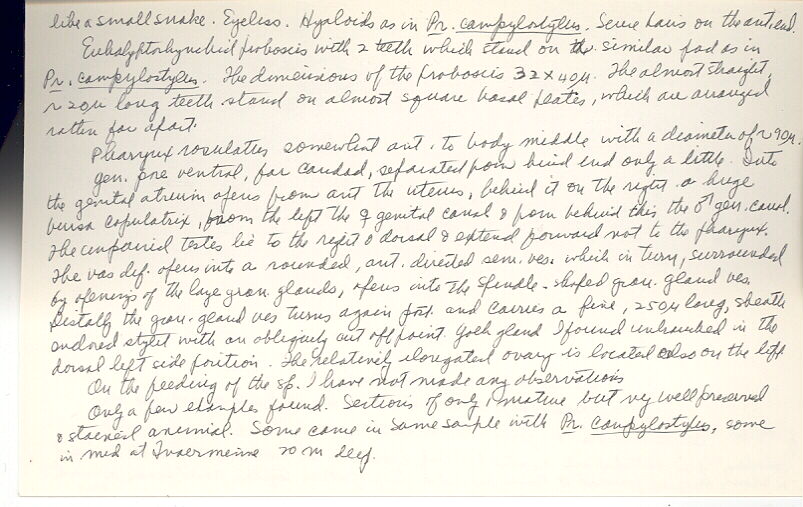 like a small snake. Eyeless. Hyaloids as in Pr. campylostylus. Sense hairs on the ant. end.
Eukalyptorhynchid proboscis with 2 teeth which stand on the similar pad as in
Pr. campylostylus. The dimensions of the proboscis 32 x 40µ. The almost straight,
~ 20µ long teeth stand on almost square basal plates, which are arranged
rather far apart.
Pharynx rosulatus somewhat ant. to body middle with a diameter of ~ 90µ.
Gen. pore ventral, far caudad, separated from hind end only a little. Into
the genital atrium opens from ant the uterus, behind it on the right a huge
bursa copulatrix, from the left the ♀ genital canal & from behind this the ♂ gen. canal.
The unpaired testes lie to the right & dorsal & extend forward not to the pharynx.
The vas def. opens into a rounded, ant. directed sem. ves. which in turn, surrounded
by openings of the large gran. glands, opens into the spindle-shaped gran. gland ves.
Distally the gran. gland ves turns again post. and carries a fine, 250µ long, sheath
enclosed stylet with an obliquely cut off point. Yolk gland I found unbranched in the
dorsal left side position. The relatively elongated ovary is located also on the left.
On the feeding of the sp. I have not made any observations
Only a few examples found. Sections of only 1 mature but very well preserved
& stained animal. Some came in same sample with Pr. campylostylus, some
in mud at Tvaerminne 20 m deep.